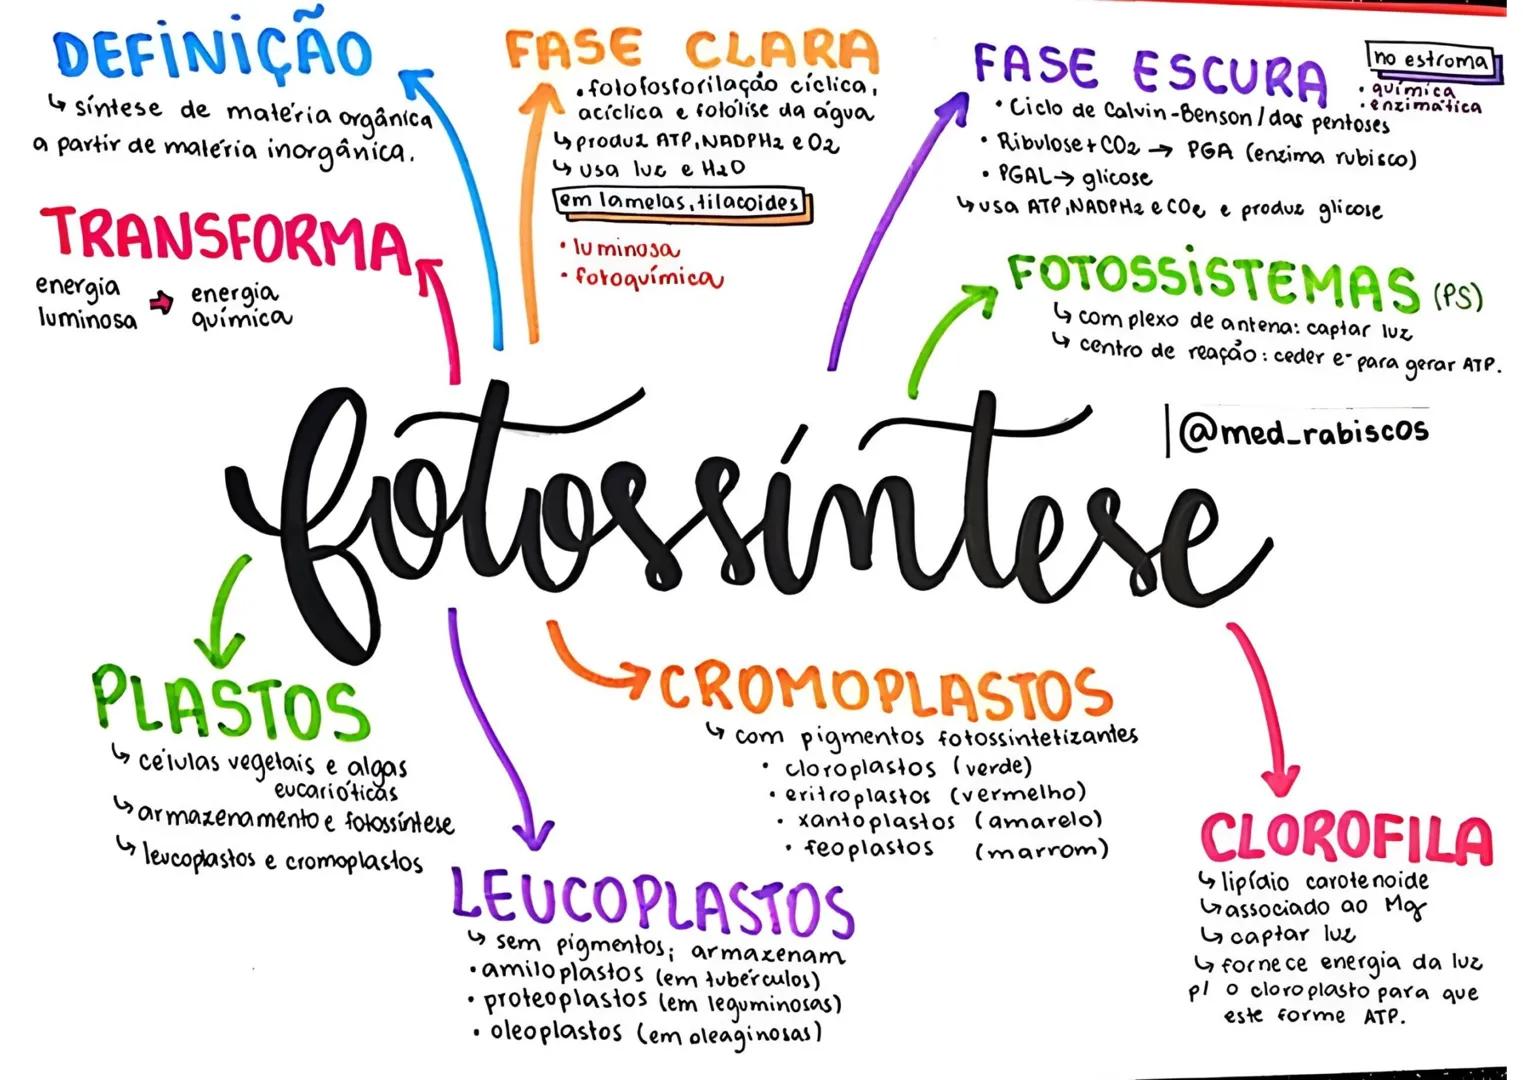 DEFINIÇÃO
↳ síntese de matéria orgânica
a partir de matéria inorgânica.
TRANSFORMA
energia luminosa → energia química
FASE CLARA
• fotofosforilação cíclica,
acíclica e fotólise da água
↳ produz ATP, NADPH2 e O2
↳ usa luz e H2O
em lamelas, tilacoides
• luminosa
• fotoquímica
FASE ESCURA
no estroma
• química
• enzimática
• Ciclo de Calvin-Benson / das pentoses
• Ribulose + CO2 → PGA (enzima rubisco)
• PGAL → glicose
↳ usa ATP, NADPH2 e CO2 e produz glicose
FOTOSSISTEMAS (PS)
↳ complexo de antena: captar luz
↳ centro de reação: ceder e- para gerar ATP.
|@med_rabiscos
fotossíntese
PLASTOS
↳ células vegetais e algas
eucarióticas
↳ armazenamento e fotossíntese
↳ leucoplastos e cromoplastos
LEUCOPLASTOS
↳ sem pigmentos; armazenam
• amiloplastos (em tubérculos)
• proteoplastos (em leguminosas)
• oleoplastos (em oleaginosas)
CROMOPLASTOS
↳ com pigmentos fotossintetizantes
• cloroplastos (verde)
• eritroplastos (vermelho)
• xantoplastos (amarelo)
• feoplastos (marrom)
CLOROFILA
↳ lipídio carotenoide
↳ associado ao Mg
↳ captar luz
↳ fornece energia da luz
p/ o cloroplasto para que
este forme ATP.